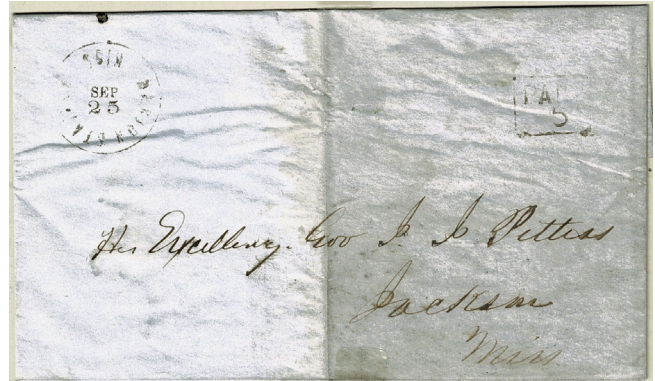 MISS
SEP
25
PAI
5
His Excellency. Gov J. J. Pettus
Jackson
Miss